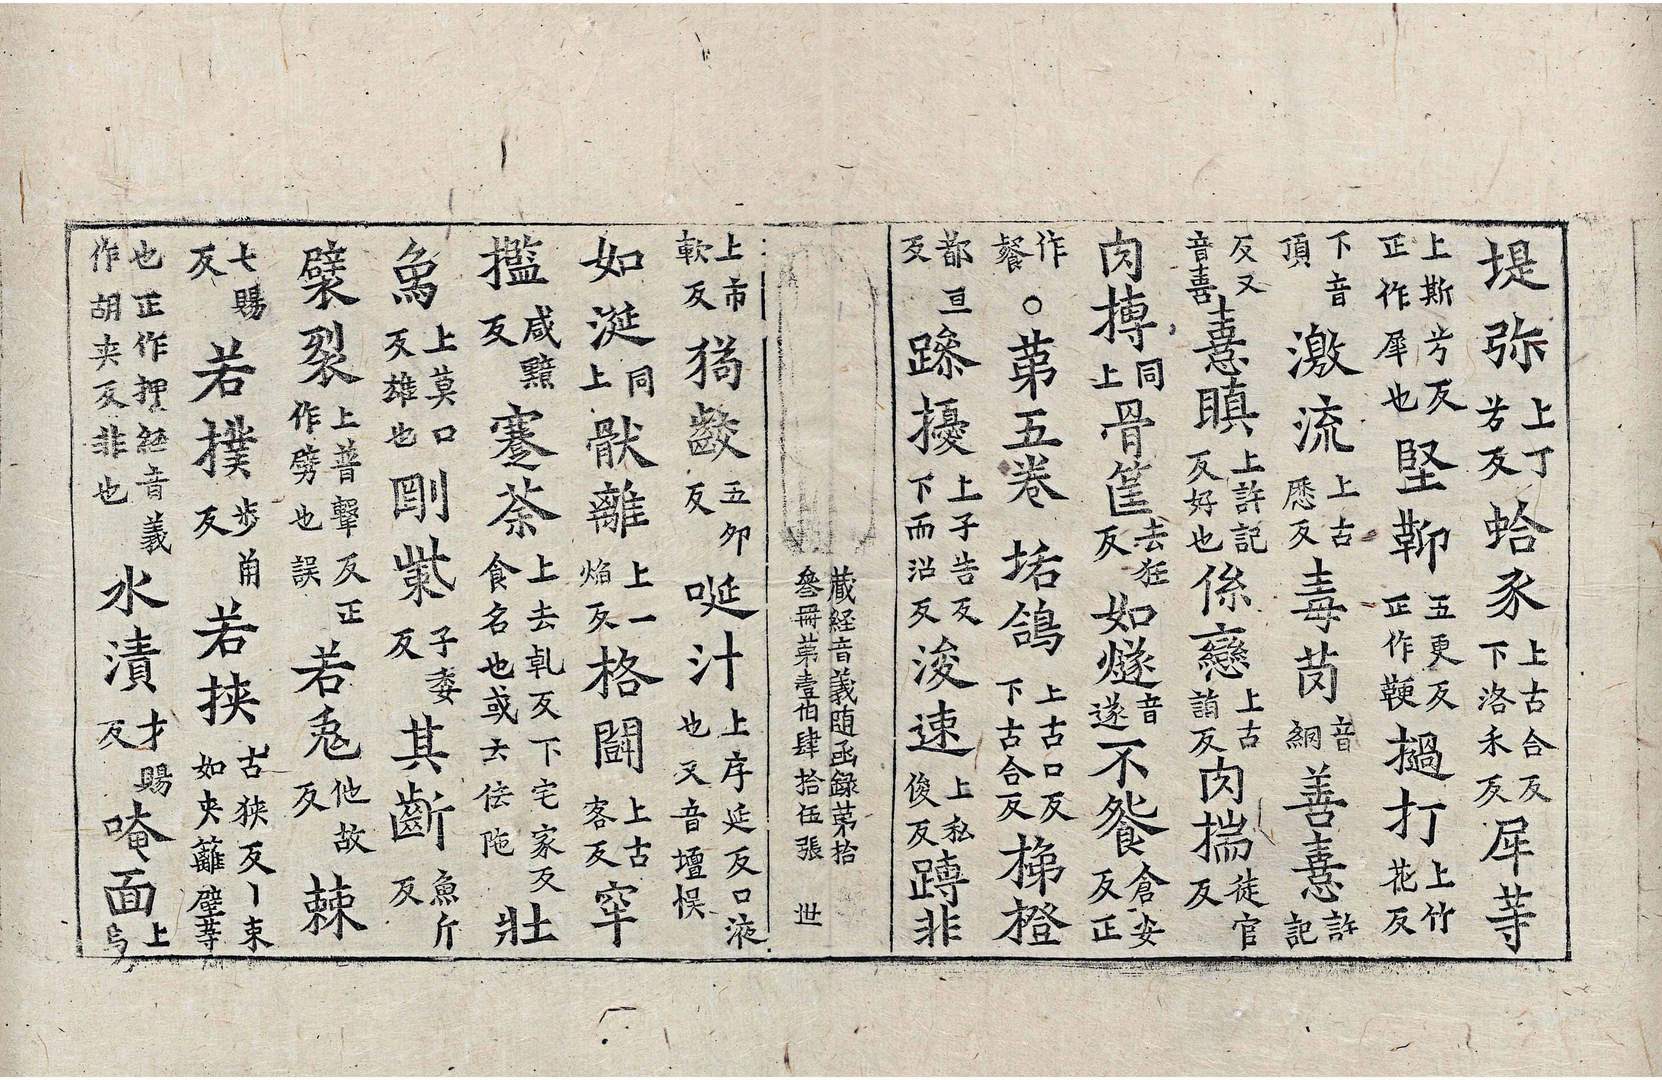 堤弥上丁兮反蛤豕上古合反下洛禾反犀䓁
上斯兮反正作犀也堅䩕五更反正作鞕撾打上竹花反
下音頂激流上古憠反毒茵音絅善憙許記
反又音喜憙瞋上許記反好也係戀上古詣反肉揣徒官反
肉摶同上骨筐去狂反如燧音遂不飱倉安反正
作餐○苐五卷垢鴿上古口反下古合反梯橙
都亘反躁擾上子告反下而沼反浚速上私俊反蹲非
藏経音義随函録苐拾
叄冊苐壹伯肆拾伍張 世
上市軟反猗齩五夘反唌汁上序延反口液也又音壇悮
如涎同上猒離上一焰反格闘上古客反牢
㩜咸黤反蹇荼上去乹反下宅家反食名也或云佉陁壯
䳄上莫口反雄也剛㭰子委反其齗魚斤反
糪裂上普擊反正作劈也誤若兎他故反棘
七賜反若撲步角反若挟古狭反丨束如夾籬壁䓁
也正作押經音義作胡夹反非也水漬才賜反唵面上烏